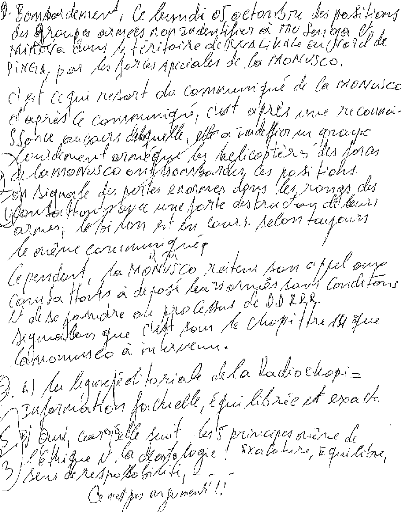 8. Bombardement, ce lundi 05 octombre des positions
des groupes armées non indentifier à Mu
dans le téritoire de Walikale au Nord de
par les forces spéciales de la MONUSCO.
C'est ce qui ressort du communiqué de la MONUSCO
d'après le communiqué, c'est après une reconnai-
ssance au cours duquelle, elle a indentifier un groupe
lourdement armé que les helicoptères des forces
de la monusco ont bombarder les positions.
on signale des pertes enormes dans les rangs des
combattants avec une forte destruction de leurs
armes, le bilan est en cours, selon toujours
le même communiqué,
Cependant, la MONUSCO réitère son appel aux
combattants à déposé leurs armes sans conditions
et de se joindre au processus de D.D.R.R.R.
Signalons que c'est sous le chapittre que
la monusco à intervenu.
2. a) la ligne éditoriale de la Radio
Information factuelle, équilibrée et exact.
b) Oui, car elle suit les 5 principes même de
l'éthique et la déontologie : Exactitude, équilibre,
sens de responsabilité,
Ce n'est pas argumenté !!